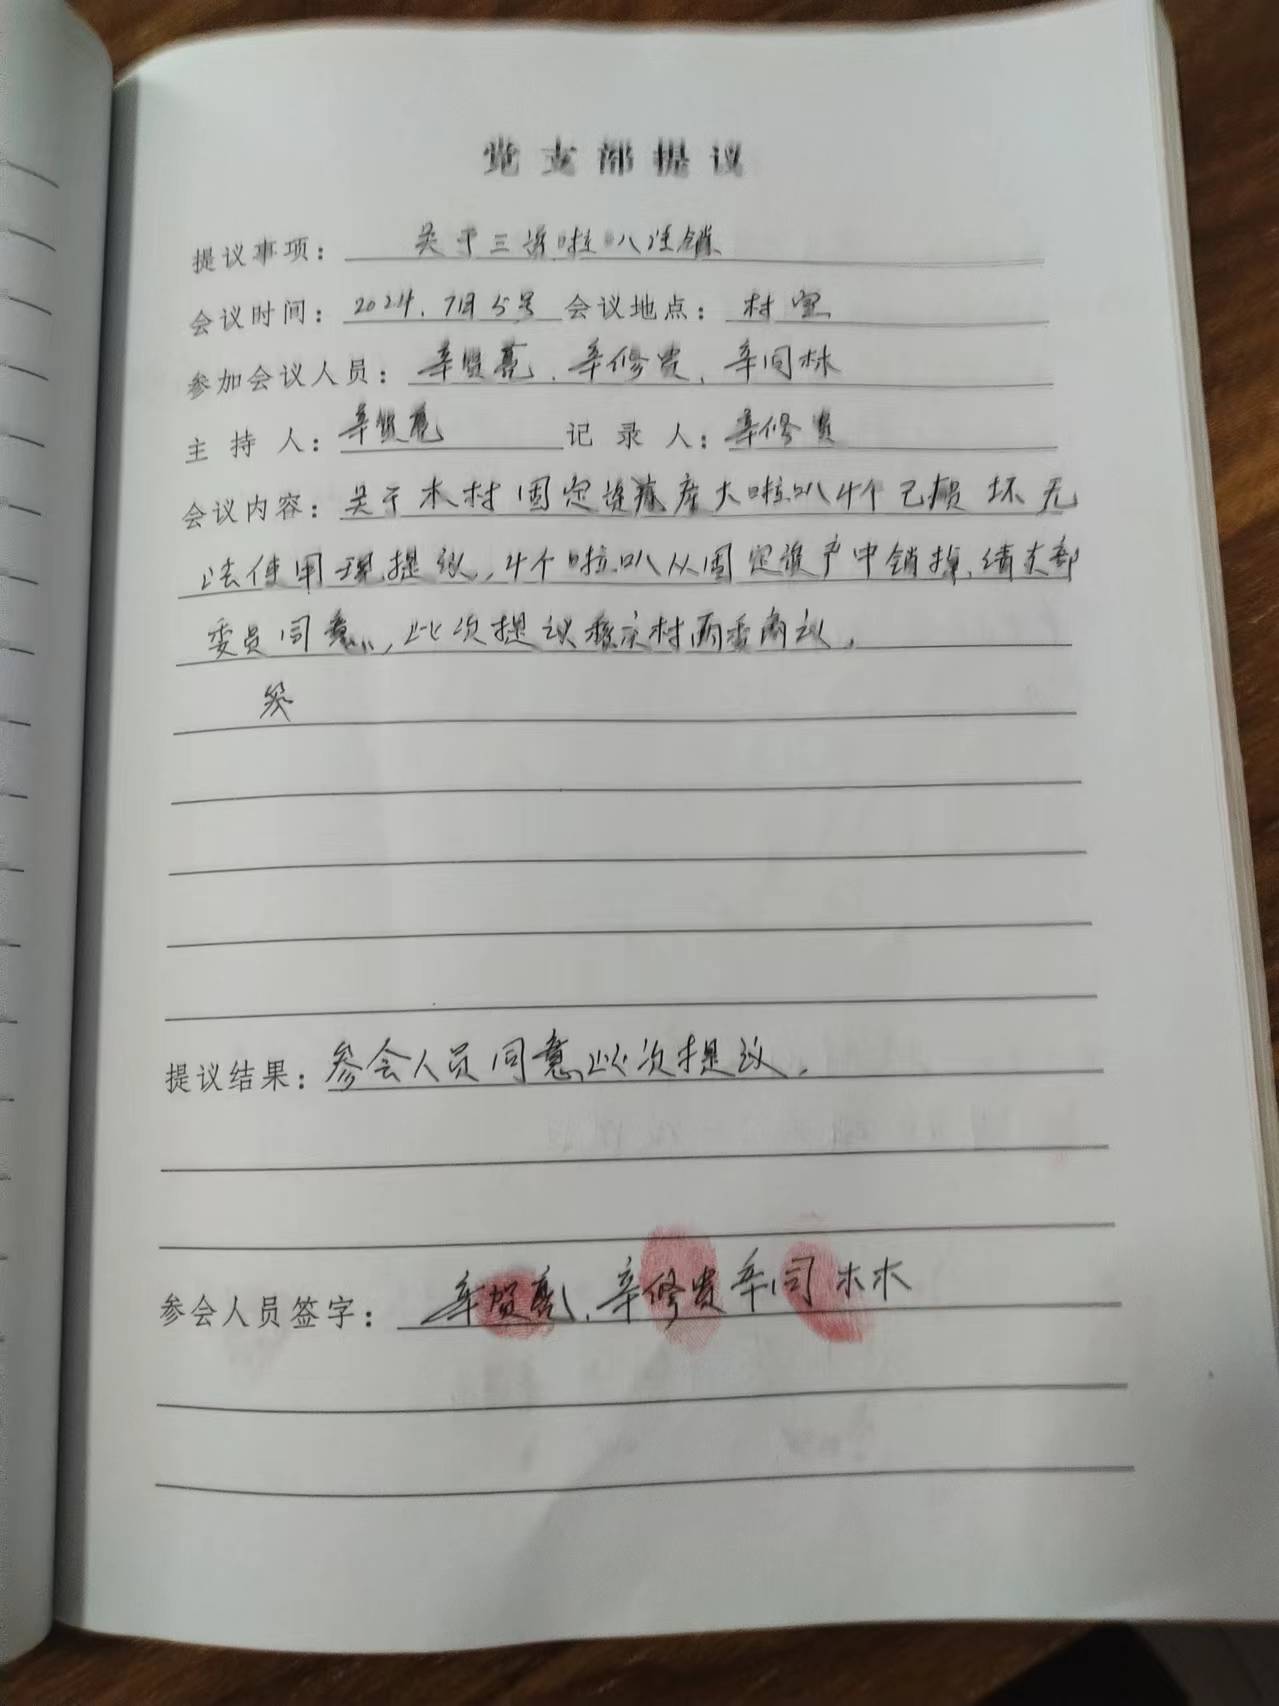 党支部提议
提议事项: 关于三资喇叭注销
会议时间: 2024.7月5号 会议地点: 村室
参加会议人员: 辛贺亮、辛修贵、辛同林
主 持 人: 辛贺亮 记 录 人: 辛修贵
会议内容: 关于本村固定资产大喇叭4个已损坏无
法使用现提议,4个喇叭从固定资产中销掉,请支部
委员同意,此次提议移交村两委商议,
提议结果: 参会人员同意此次提议,
参会人员签字: 辛贺亮、辛修贵 辛同林